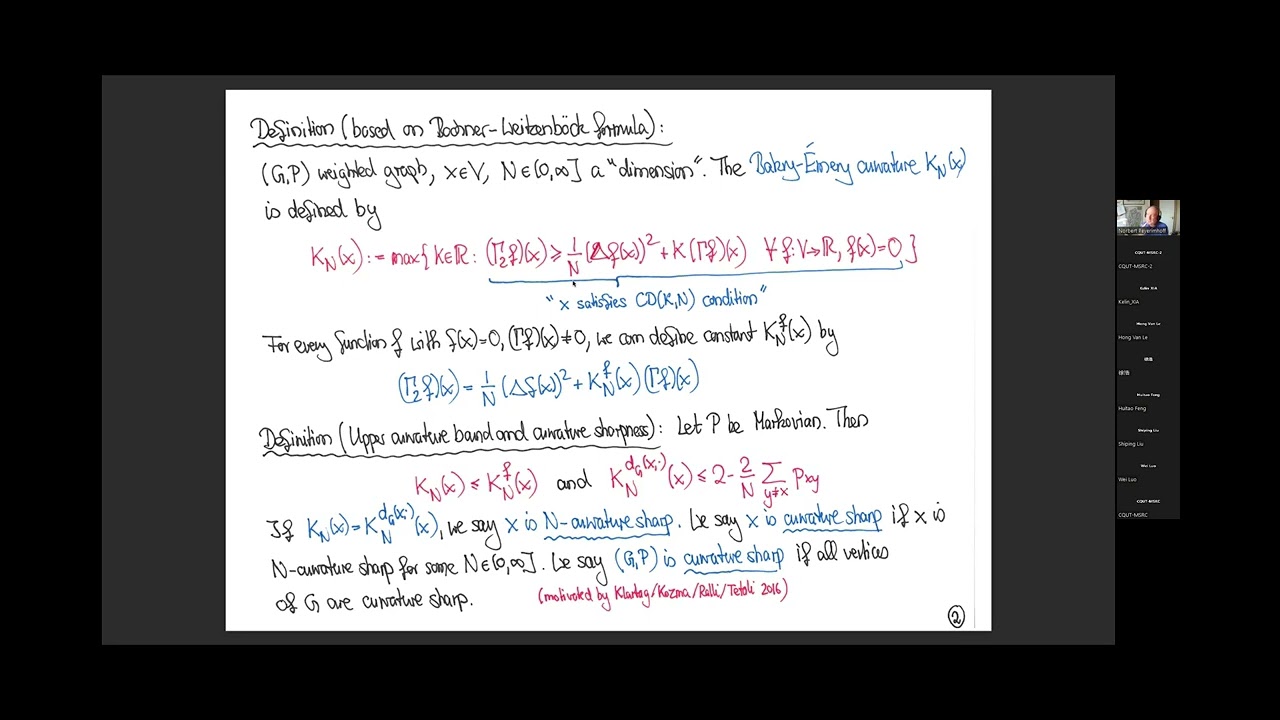 Definition (based on Bochner-Weitzenböck formula):
(G,P) weighted graph, x∈V, N∈(0,∞] a "dimension". The Bakry-Émery curvature K_N(x)
is defined by
K_N(x) := max{ K∈ℝ : (Γ₂f)(x) ≥ 1/N (Δf(x))² + K(Γf)(x) ∀ f: V→ℝ, f(x)=0 }
"x satisfies CD(K,N) condition"
For every function f with f(x)=0, (Γf)(x)≠0, we can define constant K_N^f(x) by
(Γ₂f)(x) = 1/N (Δf(x))² + K_N^f(x) (Γf)(x)
Definition (Upper curvature bound and curvature sharpness): Let P be Markovian. Then
K_N(x) ≤ K_N^f(x) and K_N^{d_G(x,·)}(x) ≤ 2 - 2/N Σ_{y≠x} p_xy
If K_N(x) = K_N^{d_G(x,·)}(x), we say x is N-curvature sharp. We say x is curvature sharp if x is
N-curvature sharp for some N∈(0,∞]. We say (G,P) is curvature sharp if all vertices
of G are curvature sharp. (motivated by Klartag/Kozma/Ralli/Tetali 2016)
2
Norbert Peyerimhoff
CQUT-MSRC-2
CQUT-MSRC-2
Kelin_XIA
Kelin_XIA
Hong Van Le
Hong Van Le
Huitao Feng
Huitao Feng
Shiping Liu
Shiping Liu
Wei Luo
Wei Luo
CQUT-MSRC
CQUT-MSRC